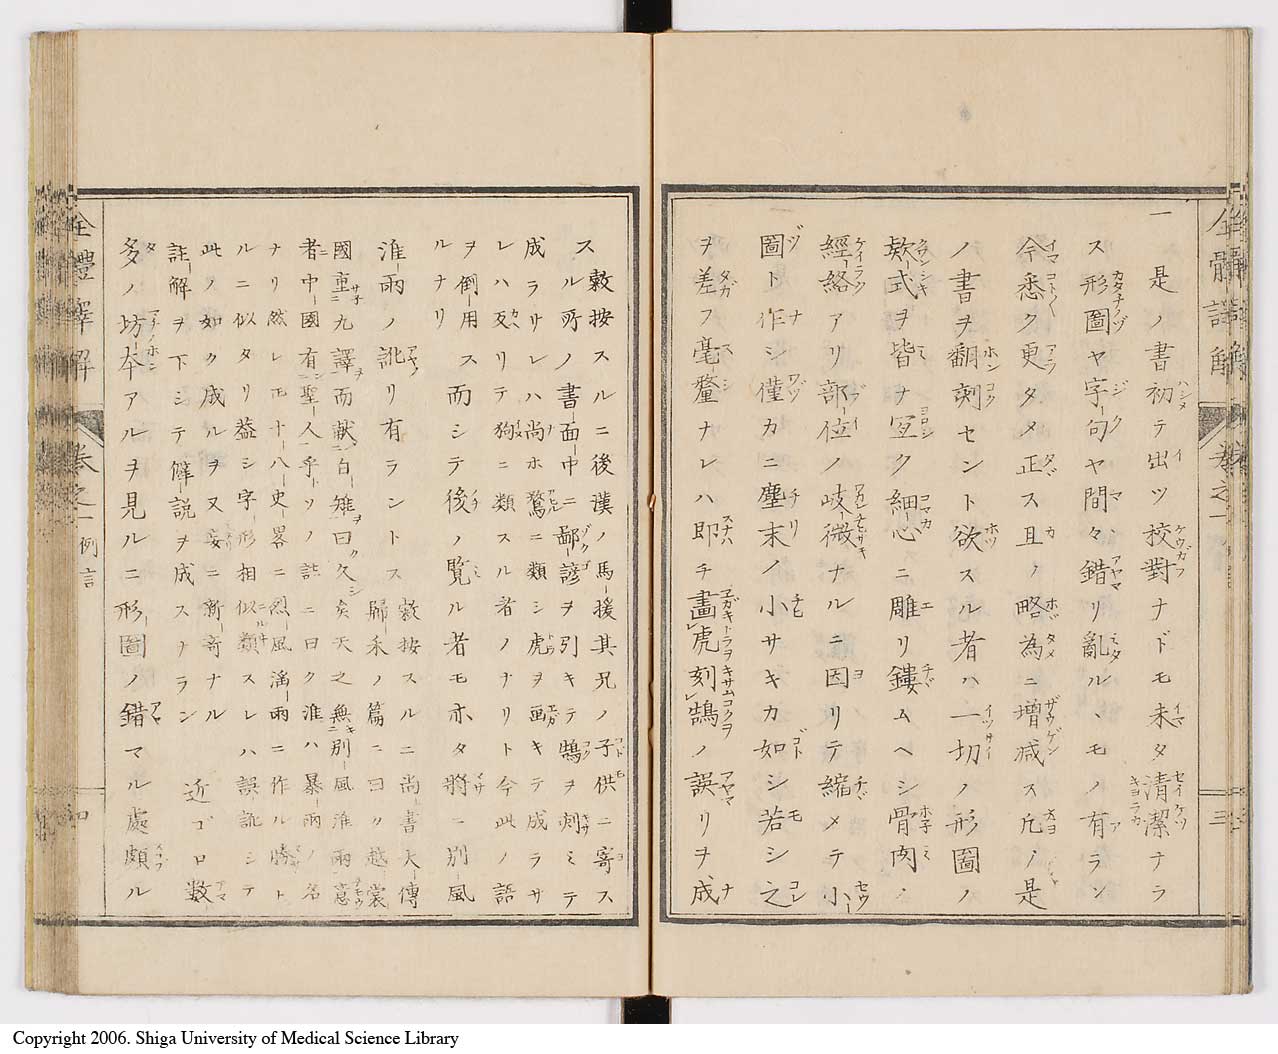 全體譯解 卷之一 三
一 是ノ書初テ出ツ校對ナドモ未タ清潔ナラ
ス形圖ヤ字句ヤ間々錯リ亂ルヽモノ有ラン
今悉ク更タメ正ス且ノ略為ニ增減ス凡ソ是
ノ書ヲ翻刻セント欲スル者ハ一切ノ形圖ノ
欵式ヲ皆ナ宜ク細心ニ雕リ鏤ムヘシ骨肉ノ
經絡アリ部位ノ岐微ナルニ因リテ縮メテ小
圖ト作シ僅カニ塵末ノ小サキカ如シ若シ之
ヲ差フ毫釐ナレハ即チ畫虎刻鵠ノ誤リヲ成
スル所ノ書面中ニ鄙諺ヲ引キテ鵠ヲ刻ミテ
穀按スルニ後漢ノ馬援其兄ノ子供ニ寄ス
成ラサレハ尚ホ鶩ニ類シ虎ヲ画キテ成ラサ
レハ反リテ狗ニ類スル者ノナリト今此ノ語
ヲ倒用ス 而シテ後ノ覧ル者モ亦タ將ニ別風
ルナリ
淮雨ノ訛リ有ラントス 穀按スルニ尚書大傳
歸禾ノ篇ニ曰ク越裳
國重九譯而献白雉曰久矣天之無別風淮雨意
者中國有聖人乎ソノ註ニ曰ク淮ハ暴雨ノ名
ナリ然レ𪜈十八史畧ニ烈風滛雨ニ作ル勝ト
ルニ似タリ葢シ字形相似類スレハ誤訛シテ
此ノ如ク成ルヲ又妄ニ新奇ナル
註解ヲ下シテ僻説ヲ成スナラン 近ゴロ數
多ノ坊本アルヲ見ルニ形圖ノ錯マル處頗ル
全體譯解 卷之一 例言 四
Copyright 2006. Shiga University of Medical Science Library